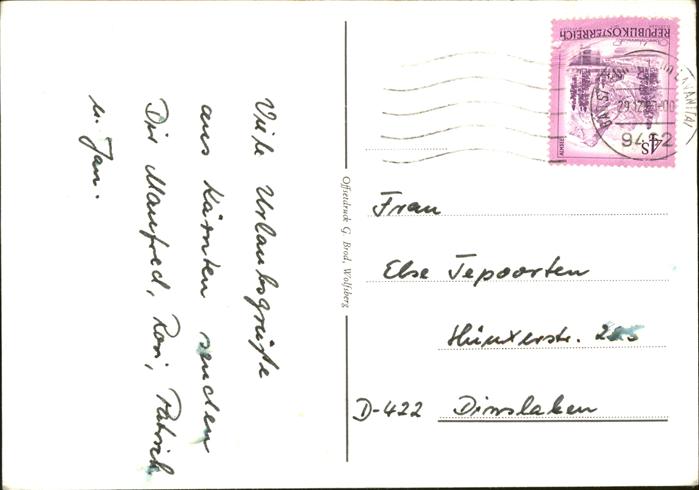 Viele Urlaubsgrüße
aus Kärnten senden
Dir Manfred, Rosi, Patrick
u. Jan.
Offsetdruck G. Brod, Wolfsberg
REPUBLIK ÖSTERREICH
ALMSEE
4S
9412
Frau
Else Tepoorten
Hünxerstr.
D-422 Dinslaken